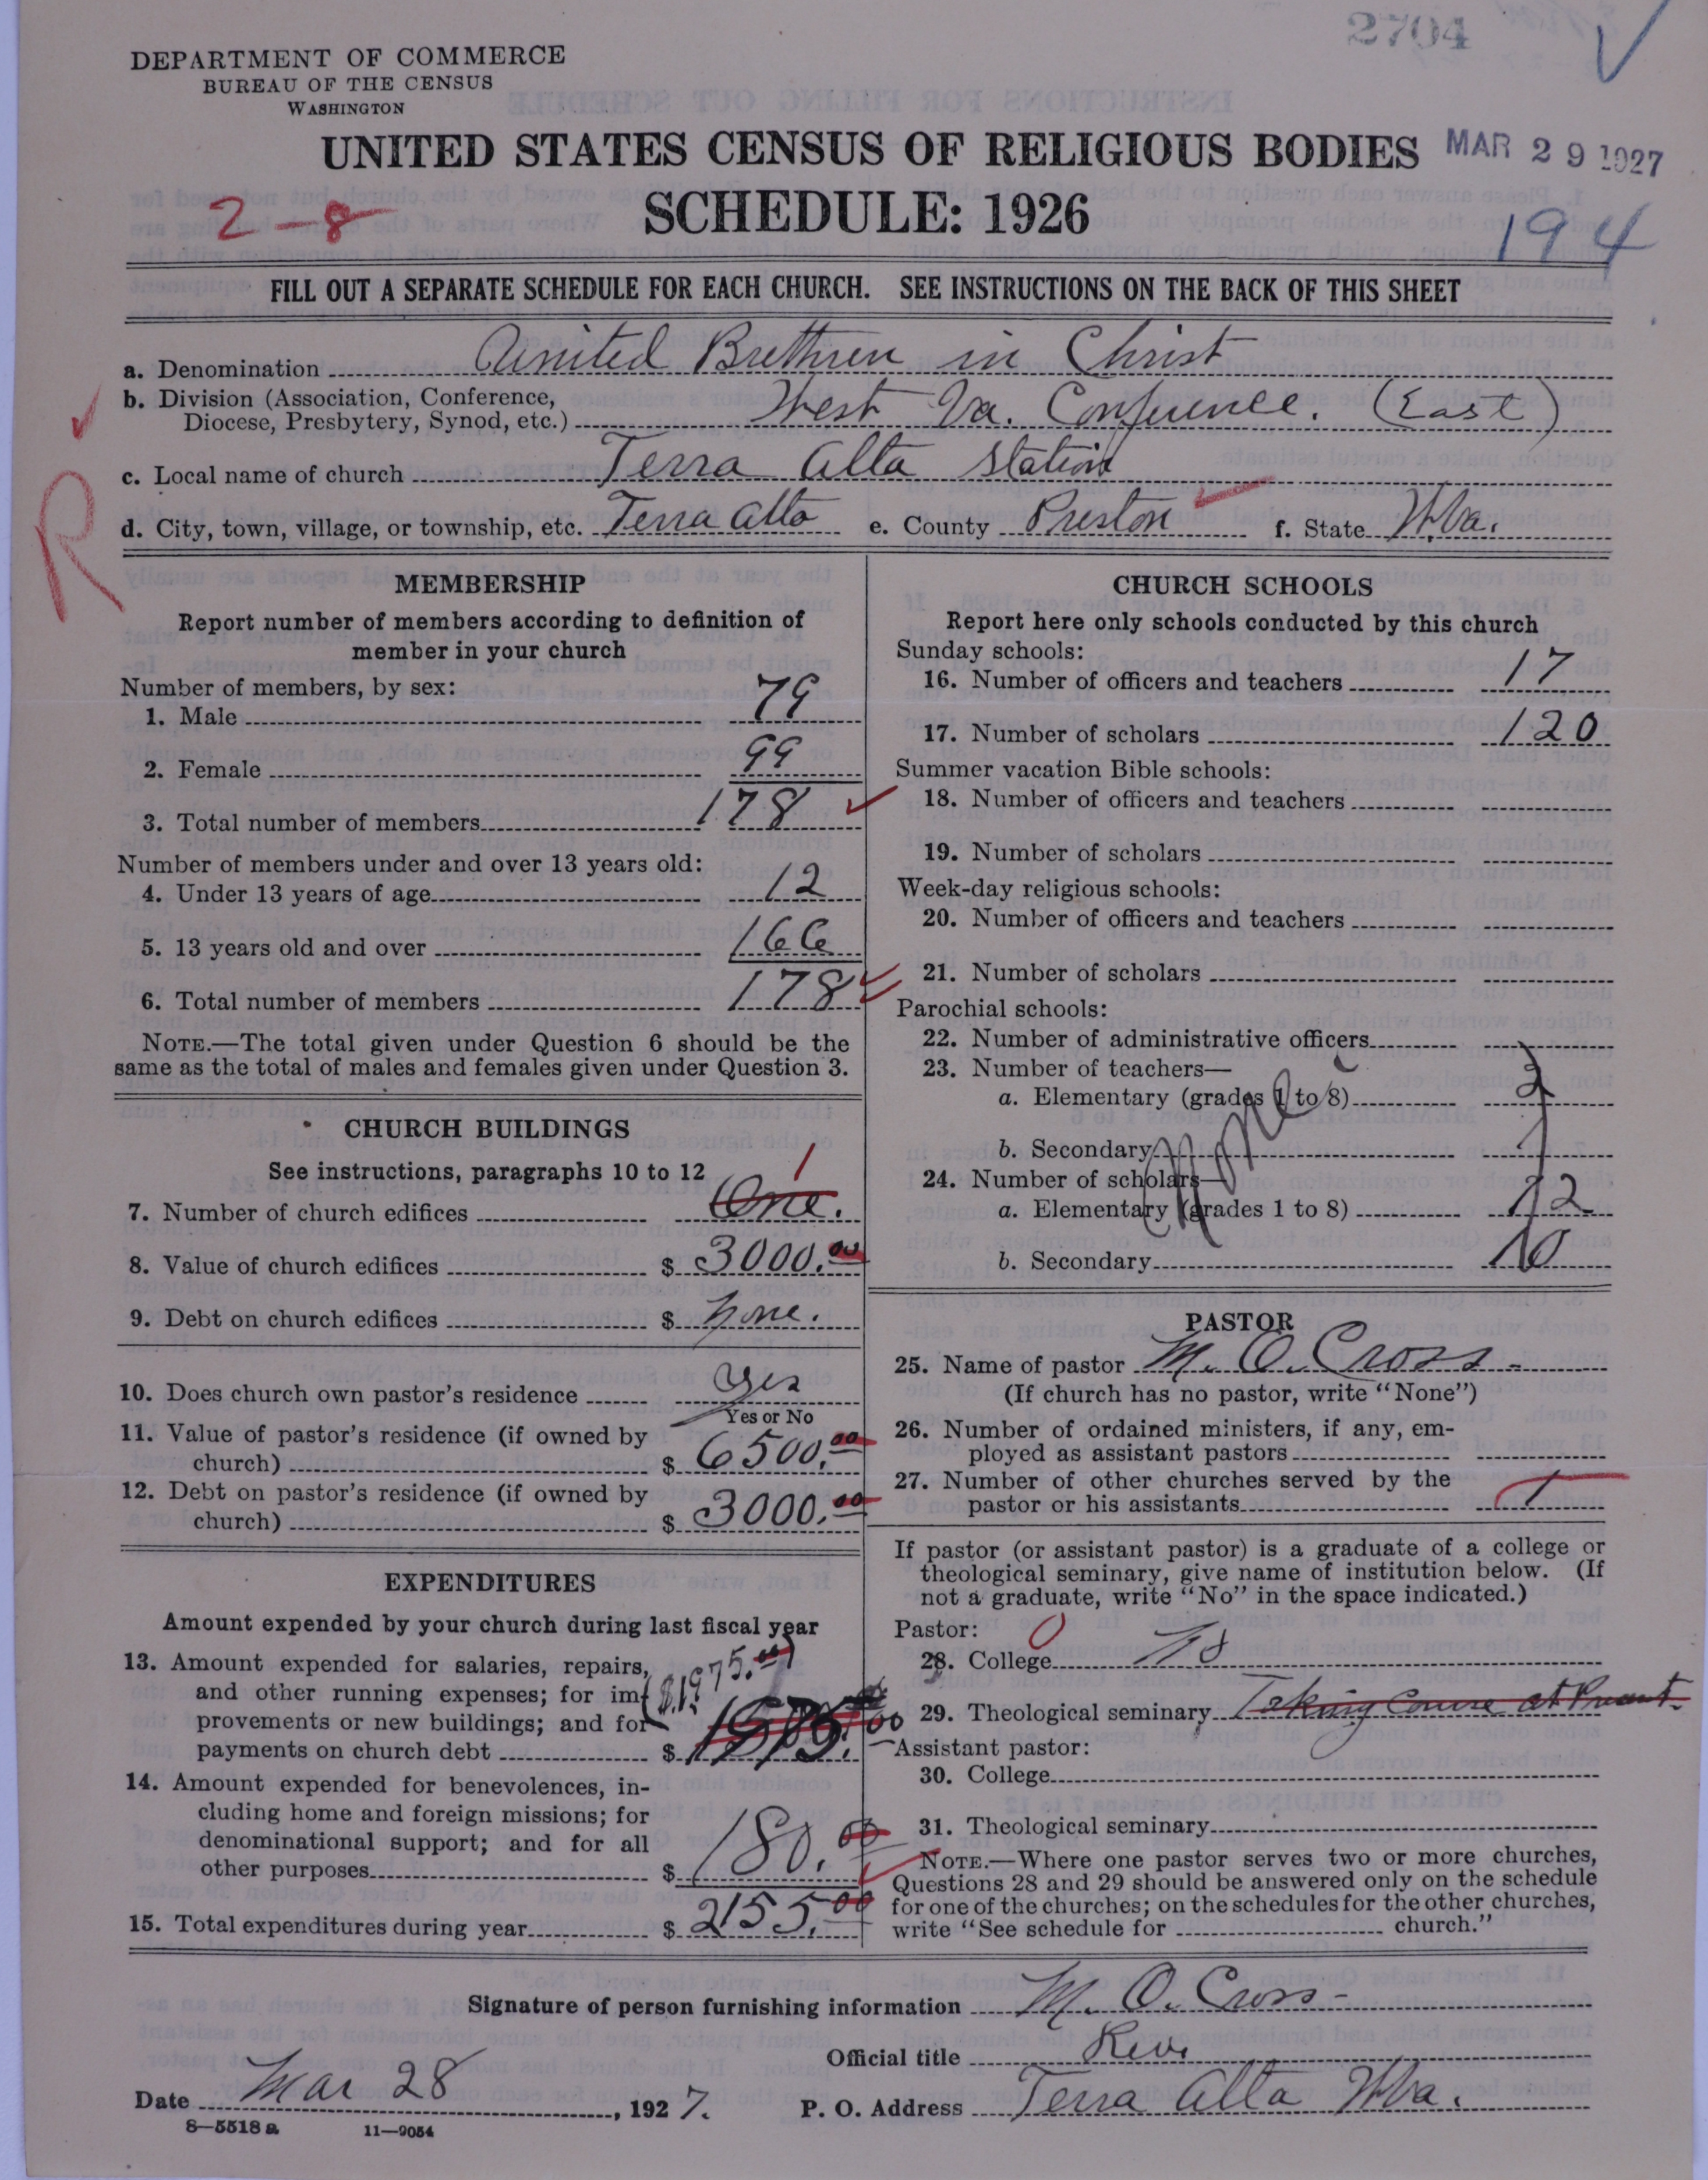 2704
DEPARTMENT OF COMMERCE
BUREAU OF THE CENSUS
WASHINGTON
UNITED STATES CENSUS OF RELIGIOUS BODIES MAR 29 1927
2-8 SCHEDULE: 1926
194
FILL OUT A SEPARATE SCHEDULE FOR EACH CHURCH. SEE INSTRUCTIONS ON THE BACK OF THIS SHEET
a. Denomination United Brethren in Christ
b. Division (Association, Conference,
Diocese, Presbytery, Synod, etc.) West Va. Conference. (East)
c. Local name of church Terra Alta Station
R
d. City, town, village, or township, etc. Terra Alta e. County Preston f. State W.Va.
MEMBERSHIP
Report number of members according to definition of
member in your church
Number of members, by sex:
1. Male 79
2. Female 99
3. Total number of members 178
Number of members under and over 13 years old:
4. Under 13 years of age 12
5. 13 years old and over 166
6. Total number of members 178
NOTE.—The total given under Question 6 should be the
same as the total of males and females given under Question 3.
CHURCH BUILDINGS
See instructions, paragraphs 10 to 12
1
7. Number of church edifices One.
8. Value of church edifices $ 3000.00
9. Debt on church edifices $ none.
10. Does church own pastor's residence Yes
Yes or No
11. Value of pastor's residence (if owned by
church) $ 6500.00
12. Debt on pastor's residence (if owned by
church) $ 3000.00
EXPENDITURES
Amount expended by your church during last fiscal year
13. Amount expended for salaries, repairs,
and other running expenses; for im-
provements or new buildings; and for
payments on church debt $
($1975.00)
14. Amount expended for benevolences, in-
cluding home and foreign missions; for
denominational support; and for all
other purposes $ 180.00
15. Total expenditures during year $ 2155.00
CHURCH SCHOOLS
Report here only schools conducted by this church
Sunday schools:
16. Number of officers and teachers 17
17. Number of scholars 120
Summer vacation Bible schools:
18. Number of officers and teachers
19. Number of scholars
Week-day religious schools:
20. Number of officers and teachers
21. Number of scholars
Parochial schools:
22. Number of administrative officers
23. Number of teachers—
a. Elementary (grades 1 to 8)
b. Secondary
None
24. Number of scholars—
a. Elementary (grades 1 to 8) 12
b. Secondary 10
PASTOR
25. Name of pastor M. O. Cross
(If church has no pastor, write "None")
26. Number of ordained ministers, if any, em-
ployed as assistant pastors
27. Number of other churches served by the
pastor or his assistants 1
If pastor (or assistant pastor) is a graduate of a college or
theological seminary, give name of institution below. (If
not a graduate, write "No" in the space indicated.)
Pastor: 0
28. College No
29. Theological seminary Taking Course at Present.
Assistant pastor:
30. College
31. Theological seminary
NOTE.—Where one pastor serves two or more churches,
Questions 28 and 29 should be answered only on the schedule
for one of the churches; on the schedules for the other churches,
write "See schedule for church."
Signature of person furnishing information M. O. Cross
Official title Rev.
Date Mar 28, 1927. P. O. Address Terra Alta W.Va.
8—5518 a 11—9054